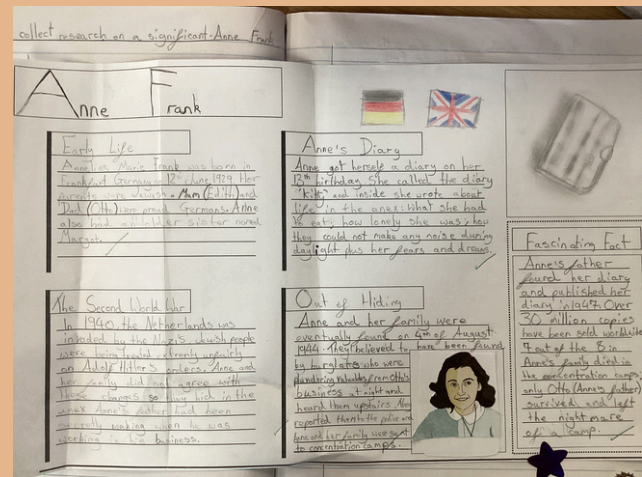 collect research on a significant-Anne Frank
Anne Frank
Early Life
Annelies Marie Frank was born in
Frankfurt Germany 12th June 1929. Her
parents were Jewish. Mam (Edith) and
Dad (Otto) were proud Germans. Anne
also had an older sister named
Margot.
The Second World War
In 1940, the Netherlands was
invaded by the Nazis. Jewish people
were being treated extremly unfairly
on Adolf Hitler's orders. Anne and
her family did not agree with
these changes so they hid in the
anex Anne's father had been
secretly making when he was
working in his business.
Anne's Diary
Anne got herself a diary on her
13th birthday. She called the diary
'kitty' and inside she wrote about
life in the anex: What she had
to eat, how lonely she was, how
they could not make any noise during
daylight plus her fears and dreams.
Out of Hiding
Anne and her family were
eventually found on 4th of August
1944. They believed to have been found
by burglars who were
plundering valuables from Otto's
business at night and
heard them upstairs. They
reported them to the police and
Anne and her family were sent
to concentration camps.
Fascinating Fact
Anne's father
found her diary
and published her
diary in 1947. Over
30 million copies
have been sold worldwide
7 out of the 8 in
Anne's family died in
the concentration camps.
only Otto (Anne's father)
survived and left
the nightmare
of a camp.